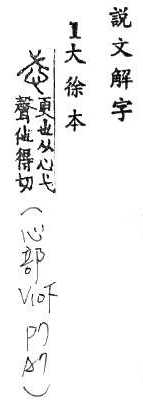 說文解字
1大徐本
更也从心弋
聲他得切
(心部V10下 P7 A7)